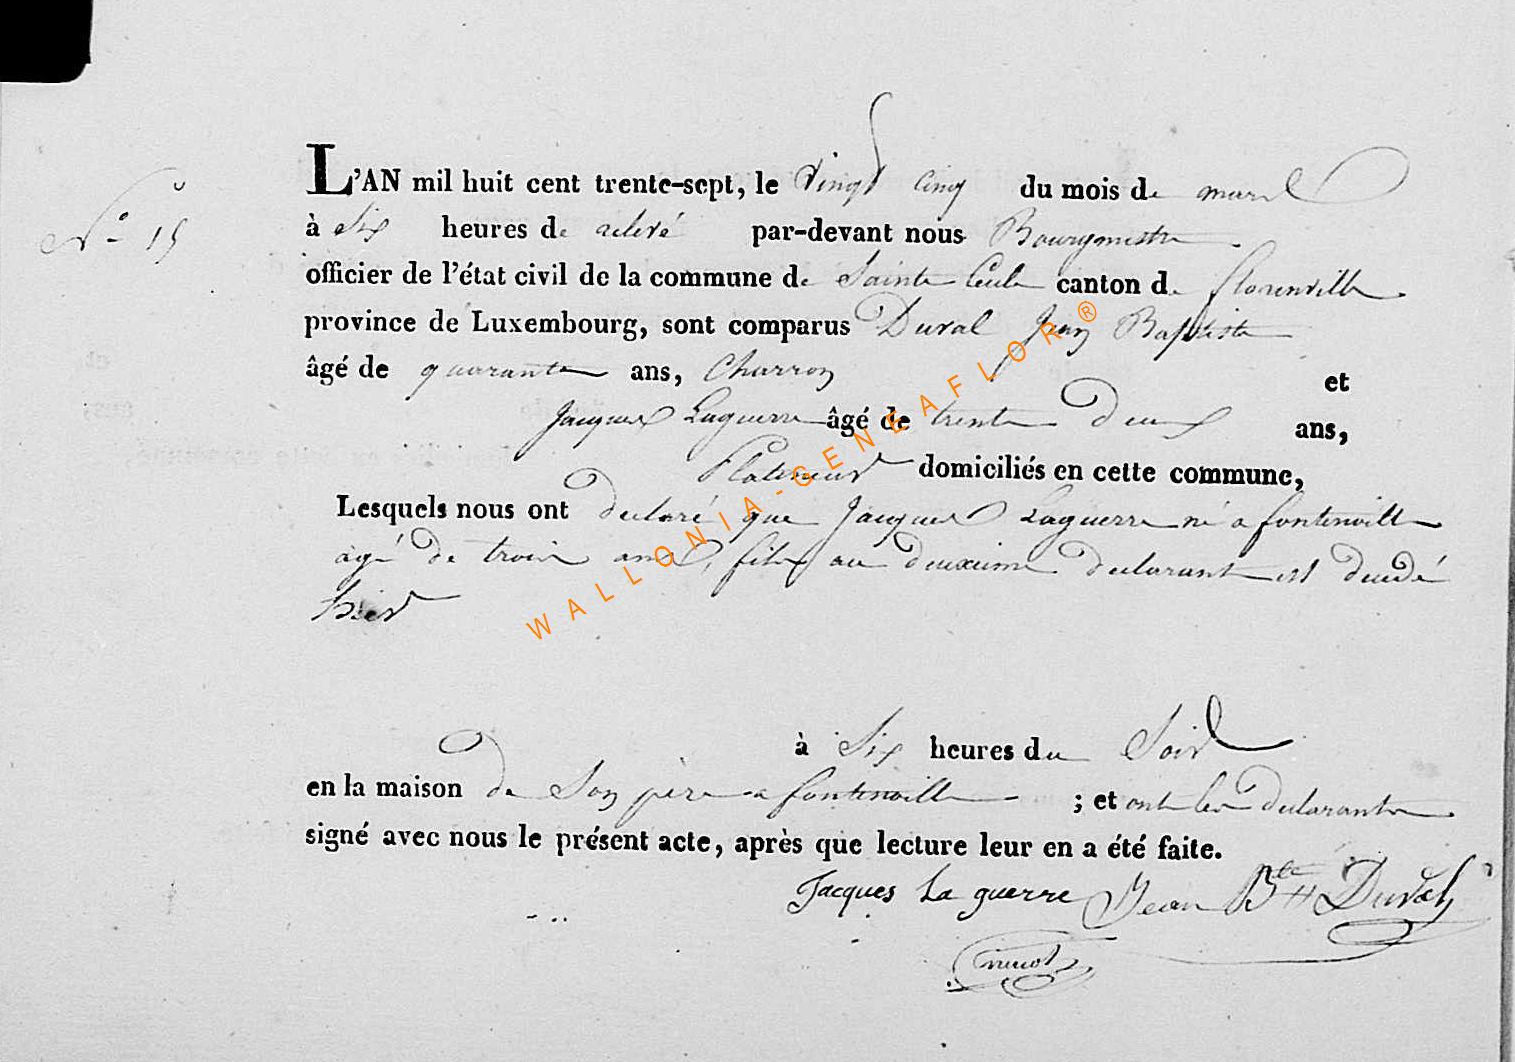 L'AN mil huit cent trente-sept, le Vingt Cinq du mois de mars
N° 15
à Six heures de relevé par-devant nous Bourgmestre
officier de l'état civil de la commune de Sainte Cecile canton de florenville
province de Luxembourg, sont comparus Duval Jean Baptiste
âgé de quarante ans, Charron et
Jacques Laguerre âgé de trente deux ans,
Platineur domiciliés en cette commune,
Lesquels nous ont declaré que Jacques Laguerre né a fontenoille
agé de trois ans, fils au deuxieme declarant est decedé
hier
à Six heures du Soir
en la maison de Son père a fontenoille ; et ont les declarants
signé avec nous le présent acte, après que lecture leur en a été faite.
Jacques La guerre Jean Bte Duval
WALLONIA-GENEAFLOR®